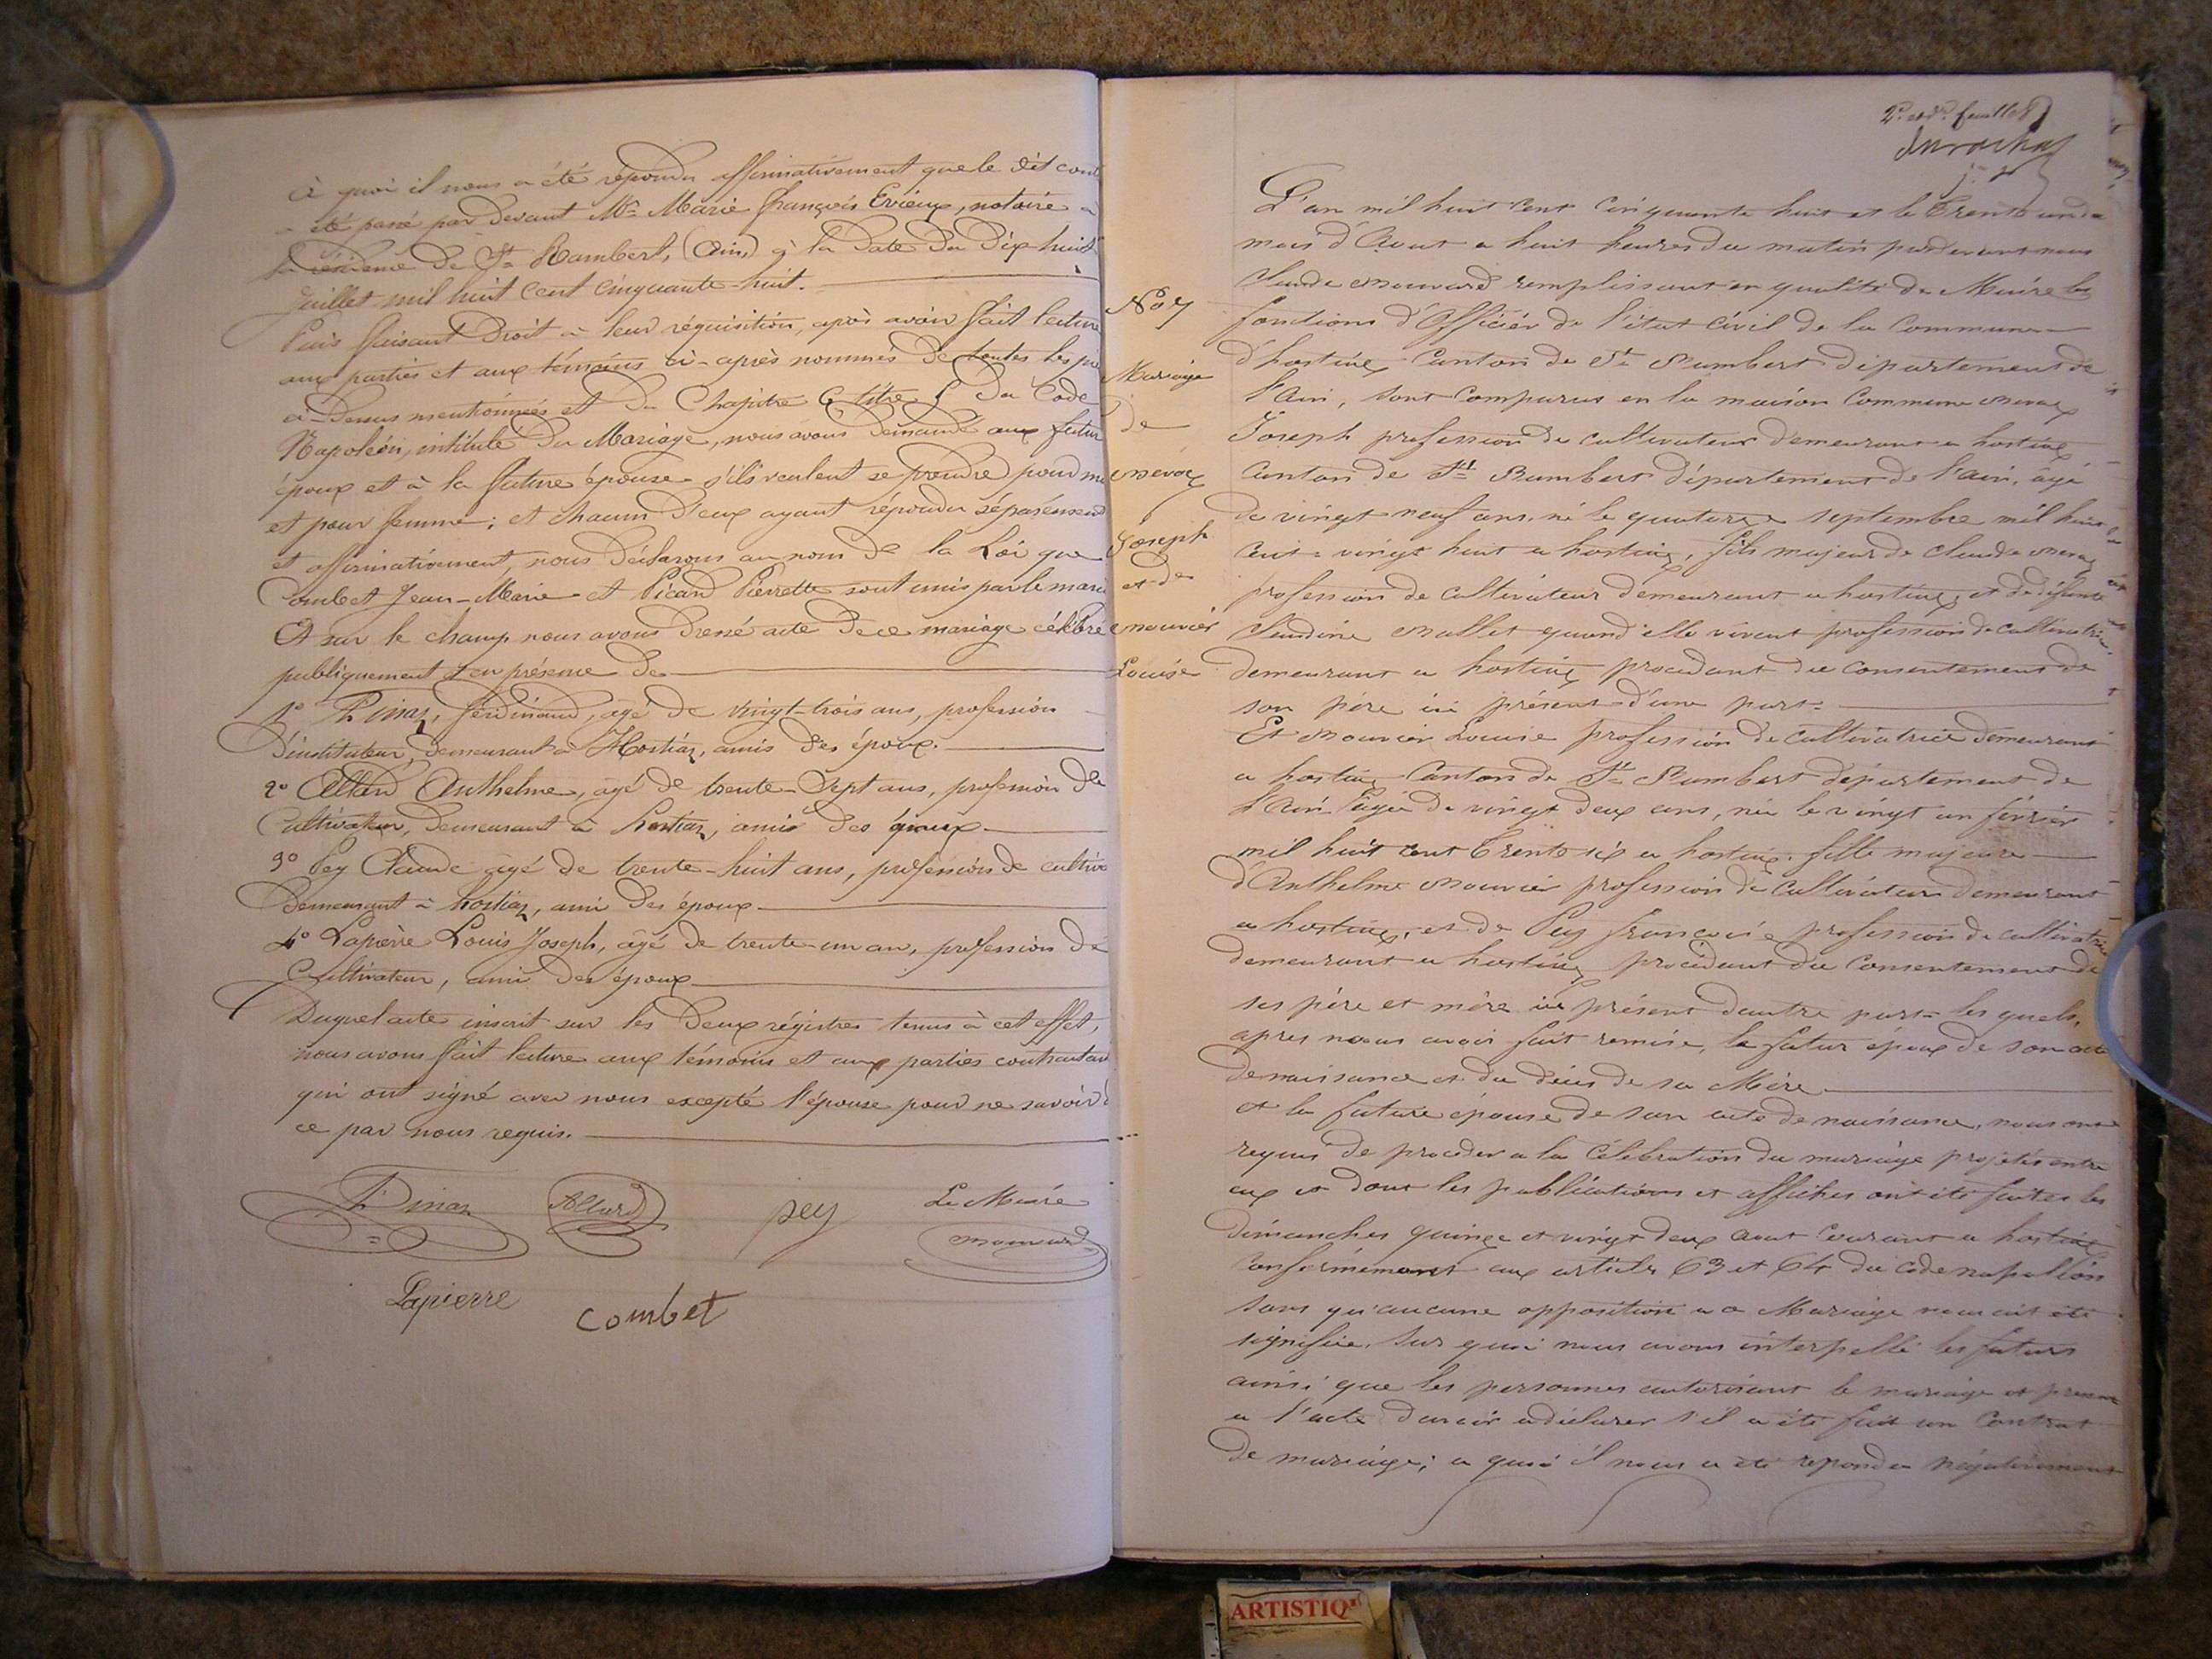 à quoi il nous a été répondu affirmativement que le dit cont
été passé par devant Me Marie François Evieux, notaire à
la résidence de St Rambert, (Ain) à la date du dix huit
Juillet mil huit cent cinquante-huit.
Puis faisant droit à leur réquisition, après avoir fait lecture
aux parties et aux témoins ci-après nommés de toutes les pi
ci-dessus mentionnées et du Chapitre 6 titre 5 du Code
Napoléon, intitulé du Mariage, nous avons demandé aux futur
époux et à la future épouse s'ils veulent se prendre pour ma
et pour femme; et chacun d'eux ayant répondu séparément
et affirmativement, nous déclarons au nom de la Loi que
Combet Jean-Marie et Picard Pierrette sont unis par le mari
Et sur le champ nous avons dressé acte de ce mariage célébré
publiquement et en présence de
1° Dinaz, Ferdinand, agé de vingt-trois ans, profession
d'instituteur, demeurant à Hostiaz, amis des époux.
2° Allard Anthelme, agé de trente-sept ans, profession de
Cultivateur, demeurant à hostiaz, ami des époux
3° Pey Claude agé de trente-huit ans, profession de cultiva
demeurant à hostiaz, ami des époux
4° Lapierre Louis Joseph, agé de trente-un an, profession de
Cultivateur, ami des époux
Duquel acte inscrit sur les deux régistres tenus à cet effet,
nous avons fait lecture aux témoins et aux parties contractan
qui ont signé avec nous excepté l'épouse pour ne savoir
ce par nous requis.
Dinaz Allard pey Le Maire
mouvard
Lapierre combet
2e et de feuillet
No 7
Mariage
de
nevoz
Joseph
et de
mouvier
Louise
L'an mil huit cent cinquante huit et le trente un du
mois d'Aout a huit heures du matin pardevant nous
Claude mouvard remplissant en qualité de Maire les
fonctions d'Officier de l'état civil de la Commune
d'hostiaz Canton de St Rambert département de
l'Ain, sont comparus en la maison Commune nevoz
Joseph profession de cultivateur demeurant a hostiaz
Canton de St Rambert département de l'Ain, âgé
de vingt neuf ans, né le quatorze septembre mil huit
cent vingt huit a hostiaz, fils majeur de claude nevoz
profession de cultivateur demeurant a hostiaz, et de défunte
Claudine mallet quand elle vivait profession de cultivatrice
demeurant a hostiaz procedant du consentement de
son père ici présent d'une part.
Et mouvier Louise profession de cultivatrice demeurant
a hostiaz Canton de St Rambert département de
l'Ain âgée de vingt deux ans, née le vingt un février
mil huit cent trente six a hostiaz. fille majeure
d'Anthelme mouvier profession de Cultivateur demeurant
a hostiaz, et de Pey françoise profession de cultivatrice
demeurant a hostiaz procédant du consentement de
ses père et mère ici présent dautre part les quels,
apres nous avoir fait remise, le futur époux de son acte
de naissance et du décès de sa Mère
et la future épouse de son acte de naissance, nous ont
requis de procéder a la célébration du mariage projetés entre
eux et dont les publications et affiches ont été faites les
dimanches quinze et vingt deux aout courant a hostiaz
conformément aux article 63 et 64 du code napolléon
sans qu'aucune opposition a ce Mariage nous ait été
signifiée. Sur quoi nous avons interpellé les futurs
ainsi que les personnes autorisant le mariage et présente
a l'acte davoir a déclarer s'il a été fait un Contrat
de mariage; a quoi il nous a été répondu négativement
ARTISTIQ